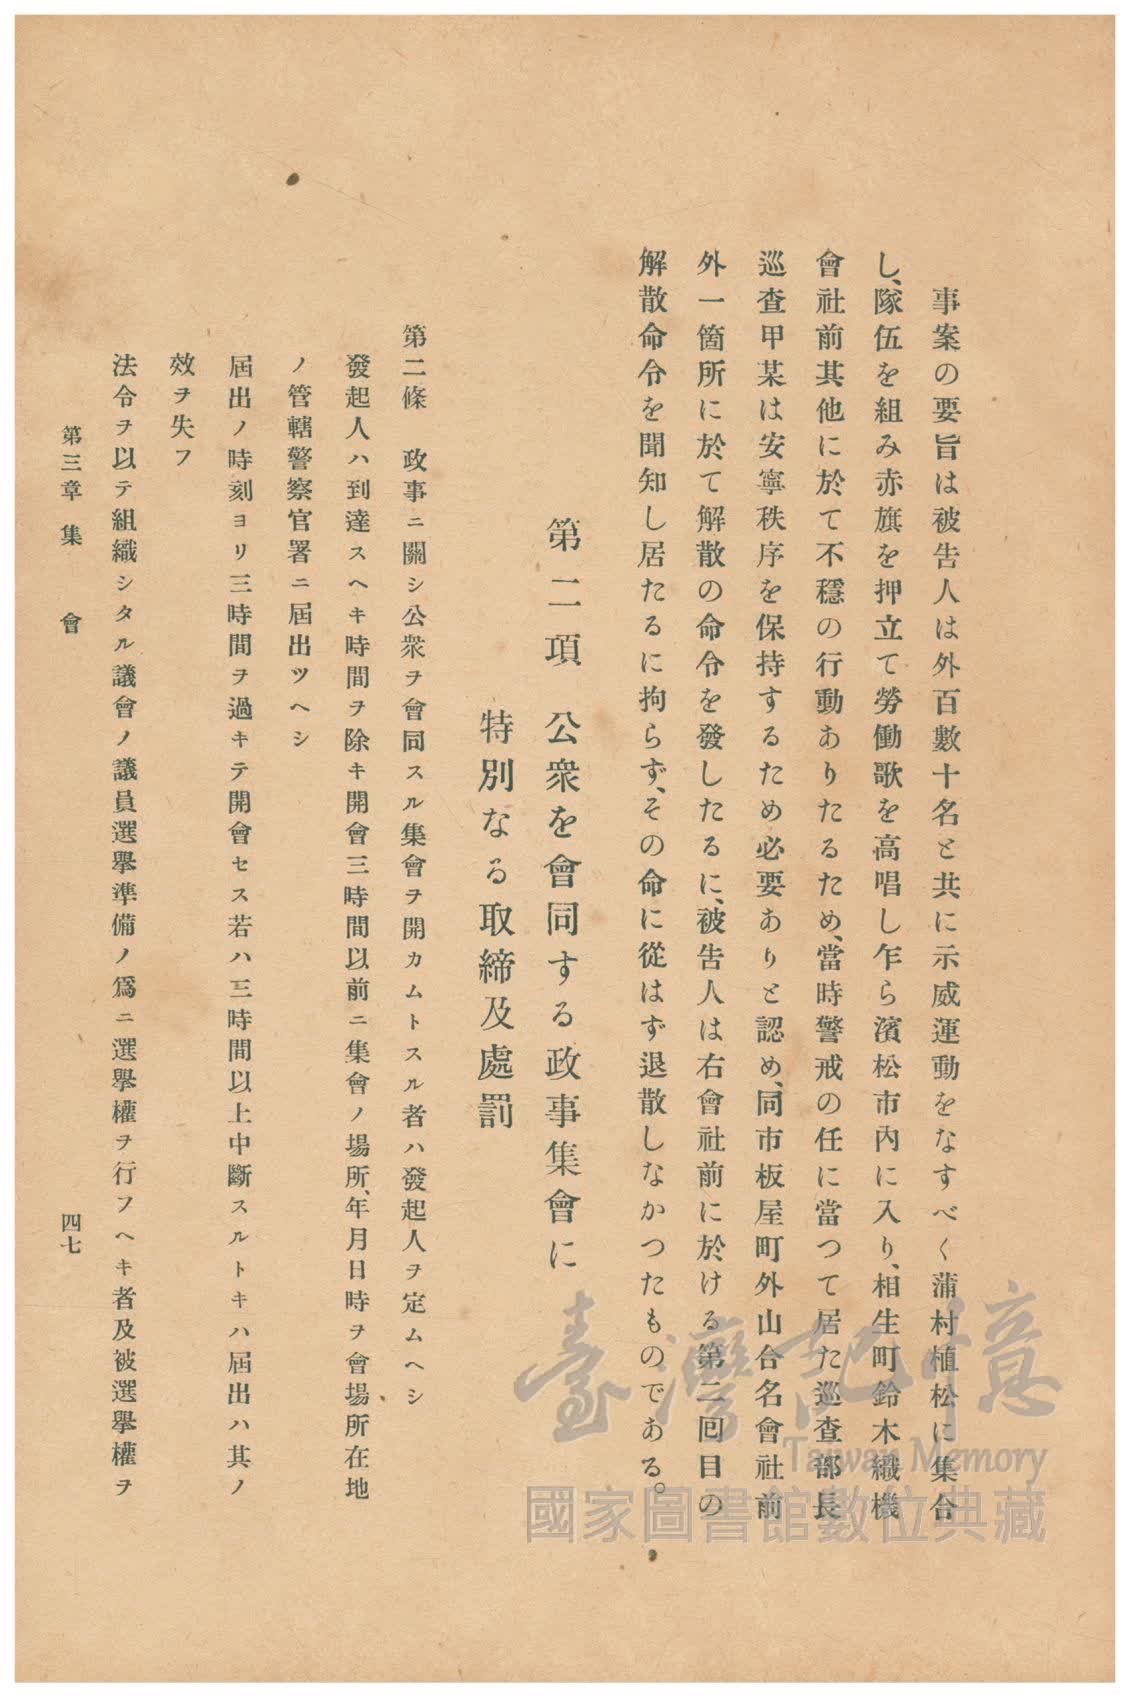 事案の要旨は被告人は外百數十名と共に示威運動をなすべく蒲村植松に集合
し、隊伍を組み赤旗を押立て勞働歌を高唱し乍ら濱松市內に入り、相生町鈴木織機
會社前其他に於て不穩の行動ありたるため、當時警戒の任に當つて居た巡査部長
巡査甲某は安寧秩序を保持するため必要ありと認め、同市板屋町外山合名會社前
外一箇所に於て解散の命令を發したるに、被告人は右會社前に於ける第二囘目の
解散命令を聞知し居たるに拘らず、その命に從はず退散しなかつたものである。
第二項　公衆を會同する政事集會に
特別なる取締及處罰
第二條　政事ニ關シ公衆ヲ會同スル集會ヲ開カムトスル者ハ發起人ヲ定ムヘシ
發起人ハ到達スヘキ時間ヲ除キ開會三時間以前ニ集會ノ場所、年月日時ヲ會場所在地
ノ管轄警察官署ニ屆出ツヘシ
屆出ノ時刻ヨリ三時間ヲ過キテ開會セス若ハ三時間以上中斷スルトキハ屆出ハ其ノ
效ヲ失フ
法令ヲ以テ組織シタル議會ノ議員選擧準備ノ爲ニ選擧權ヲ行フヘキ者及被選擧權ヲ
第三章　集　會
四七
臺灣記憶
Taiwan Memory
國家圖書館數位典藏